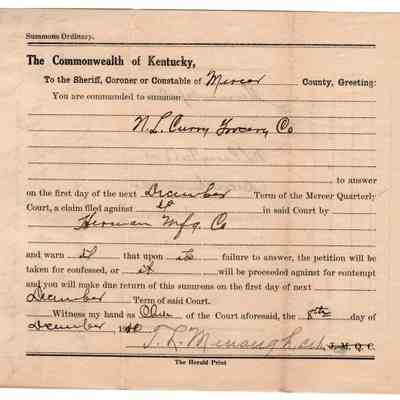 Summons Ordinary.
The Commonwealth of Kentucky,
To the Sheriff, Coroner or Constable of Mercer County, Greeting:
You are commanded to summon
N. L. Curry Grocery Co
to answer
on the first day of the next December Term of the Mercer Quarterly
Court, a claim filed against it in said Court by
Herman Mfg. Co
and warn it that upon its failure to answer, the petition will be
taken for confessed, or it will be proceeded against for contempt
and you will make due return of this summons on the first day of next
December Term of said Court.
Witness my hand as Clerk of the Court aforesaid, the 8th day of
December, 1910
J. M. Q. C.
The Herald Print